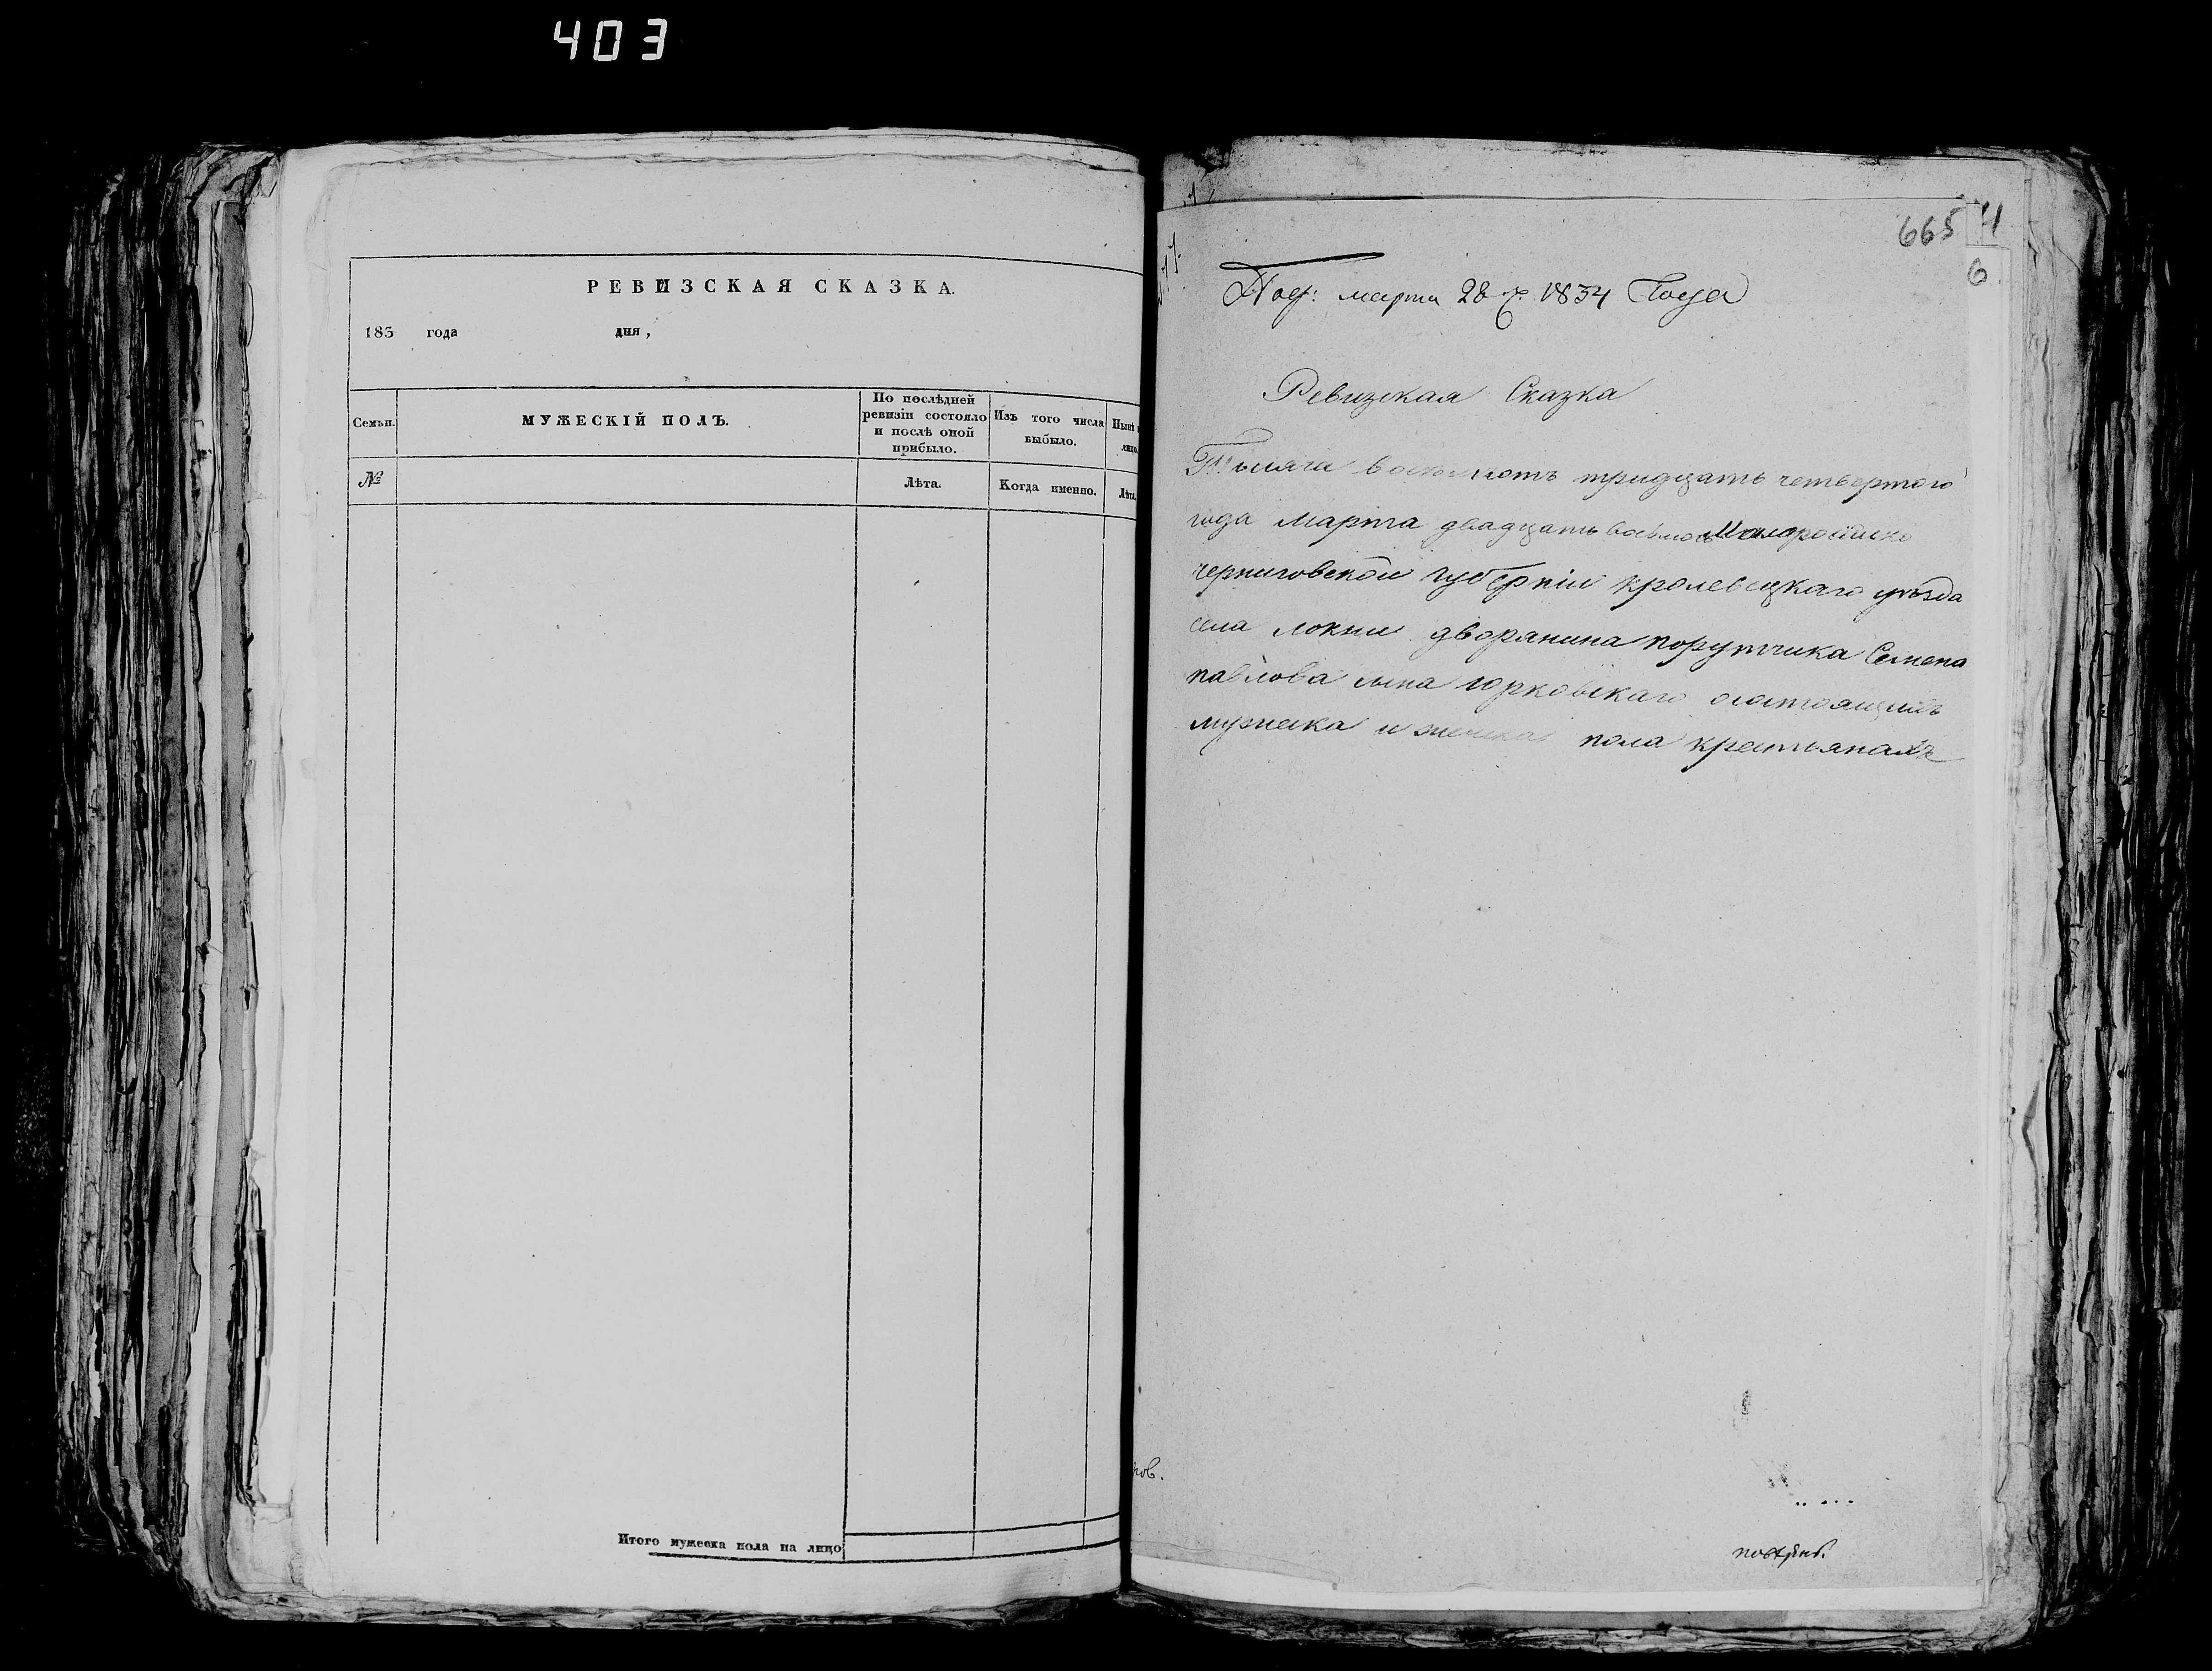 403
РЕВИЗСКАЯ СКАЗКА.
183 года дня,
Семьи. МУЖЕСКІЙ ПОЛЪ. По послѣдней ревизіи состояло и послѣ оной прибыло. Изъ того числа выбыло. Нынѣ
лицо
№ Лѣта. Когда именно. Лѣта.
Итого мужеска пола на лицо
665 4
6
марта 28 1834 Года
Ревизская Сказка
Тысяча восемсотъ тридцать четвертого
года Марта двадцать восмого Малоросійско
черниговской губерніи кролевецкаго уѣзда
села локни дворянина порутчика Семена
павлова сына юрковскаго о состоящихъ
мужеска и женска пола крестьянахъ
ков.